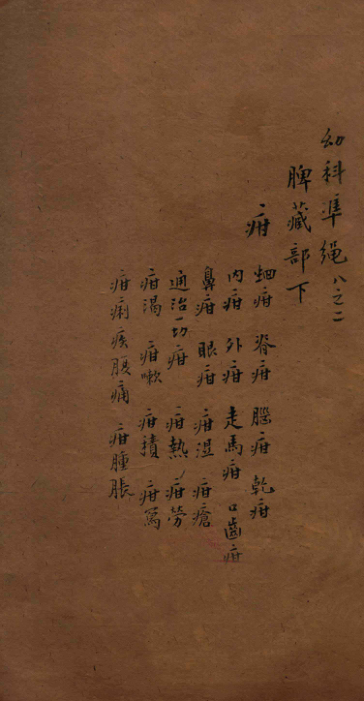 幼科準繩 八之二
脾藏部下
疳
蛔疳 脊疳 腦疳 乾疳
內疳 外疳 走馬疳 口齒疳
鼻疳 眼疳 疳濕 疳瘡
通治一切疳 疳熱 疳勞
疳渴 疳嗽 疳積 疳瀉
疳痢 疾脹痛 疳腫脹